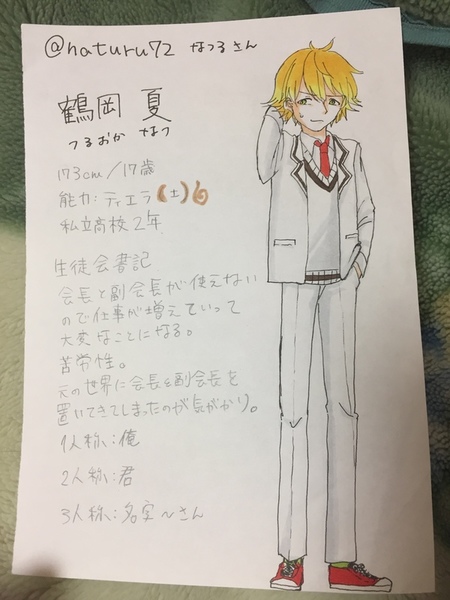 @naturu72 なつるさん
鶴岡 夏
つるおか なつ
173cm/17歳
能力:ティエラ(土)
私立高校2年
生徒会書記
会長と副会長が使えない
ので仕事が増えていって
大変なことになる。
苦労性。
元の世界に会長と副会長を
置いてきてしまったのが気がかり。
1人称:俺
2人称:君
3人称:名字~さん